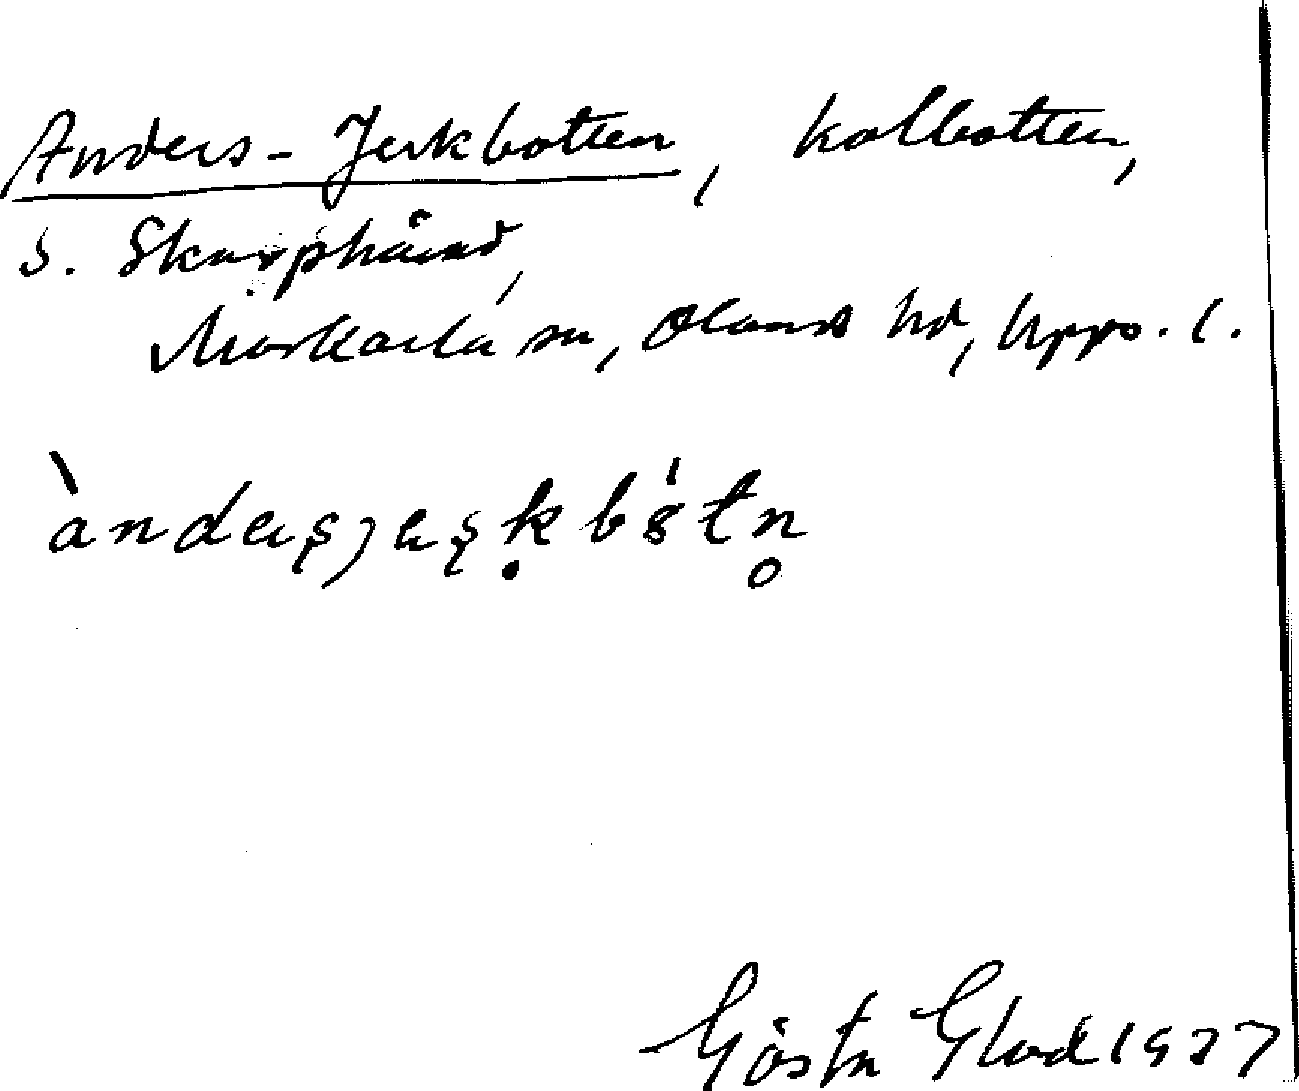 Anders-Jerkbotten, kolbotten,
S. Skarphärad,
Morkarla sn, Olands hd, Upps. l.
Gösta Glad 1937